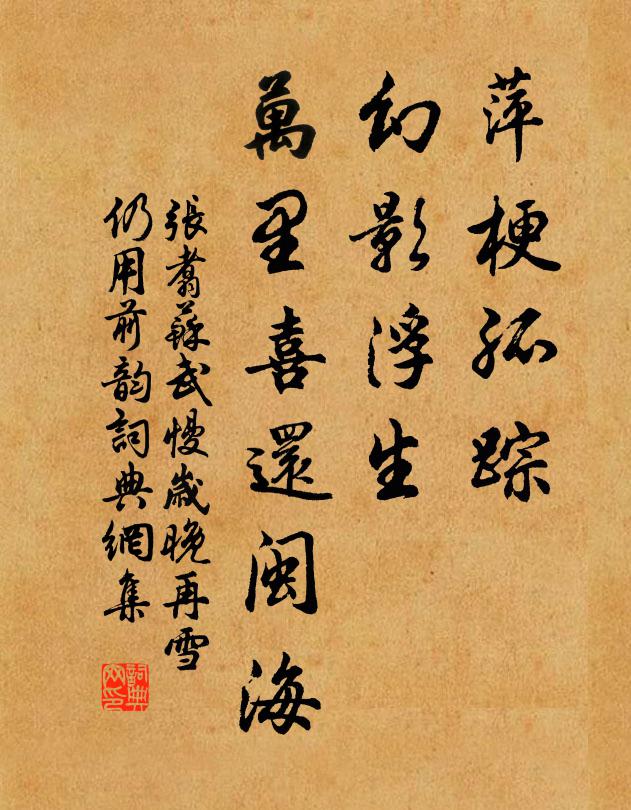 萍梗孤踪
幻影浮生
萬里喜還閩海
張翥蘇武慢歲晚再雪
仍用前韵詞典網集
詞典網印